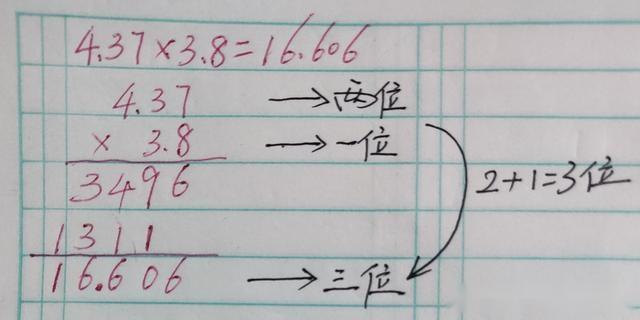 4.37×3.8=16.606
4.37 → 两位
× 3.8 → 一位
2+1=3位
3496
1311
16.606 → 三位